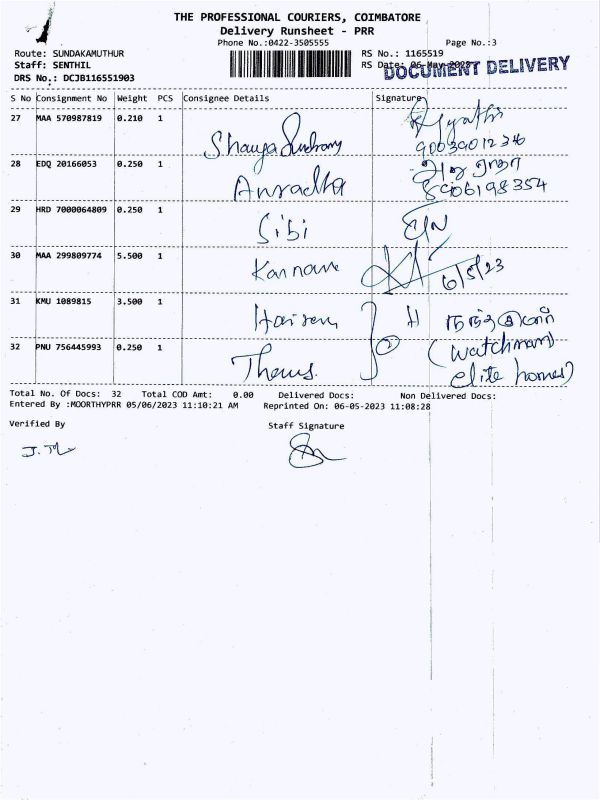 THE PROFESSIONAL COURIERS, COIMBATORE
Delivery Runsheet - PRR
Phone No.:0422-3505555
Page No.:3
Route: SUNDAKAMUTHUR
RS No.: 1165519
Staff: SENTHIL
RS Date: 06-May-2023
DOCUMENT DELIVERY
DRS No.: DCJB116551903
S No Consignment No Weight PCS Consignee Details Signature
27 MAA 570987819 0.210 1
9003901236
28 EDQ 20166053 0.250 1 Anuradha
அனுராதா
8906198354
29 HRD 7000064809 0.250 1 Sibi
30 MAA 299809774 5.500 1 Kannan
6/5/23
31 KMU 1089815 3.500 1
32 PNU 756445993 0.250 1
2
(watchman)
elite homes)
Total No. Of Docs: 32 Total COD Amt: 0.00 Delivered Docs: Non Delivered Docs:
Entered By :MOORTHYPRR 05/06/2023 11:10:21 AM Reprinted On: 06-05-2023 11:08:28
Verified By Staff Signature